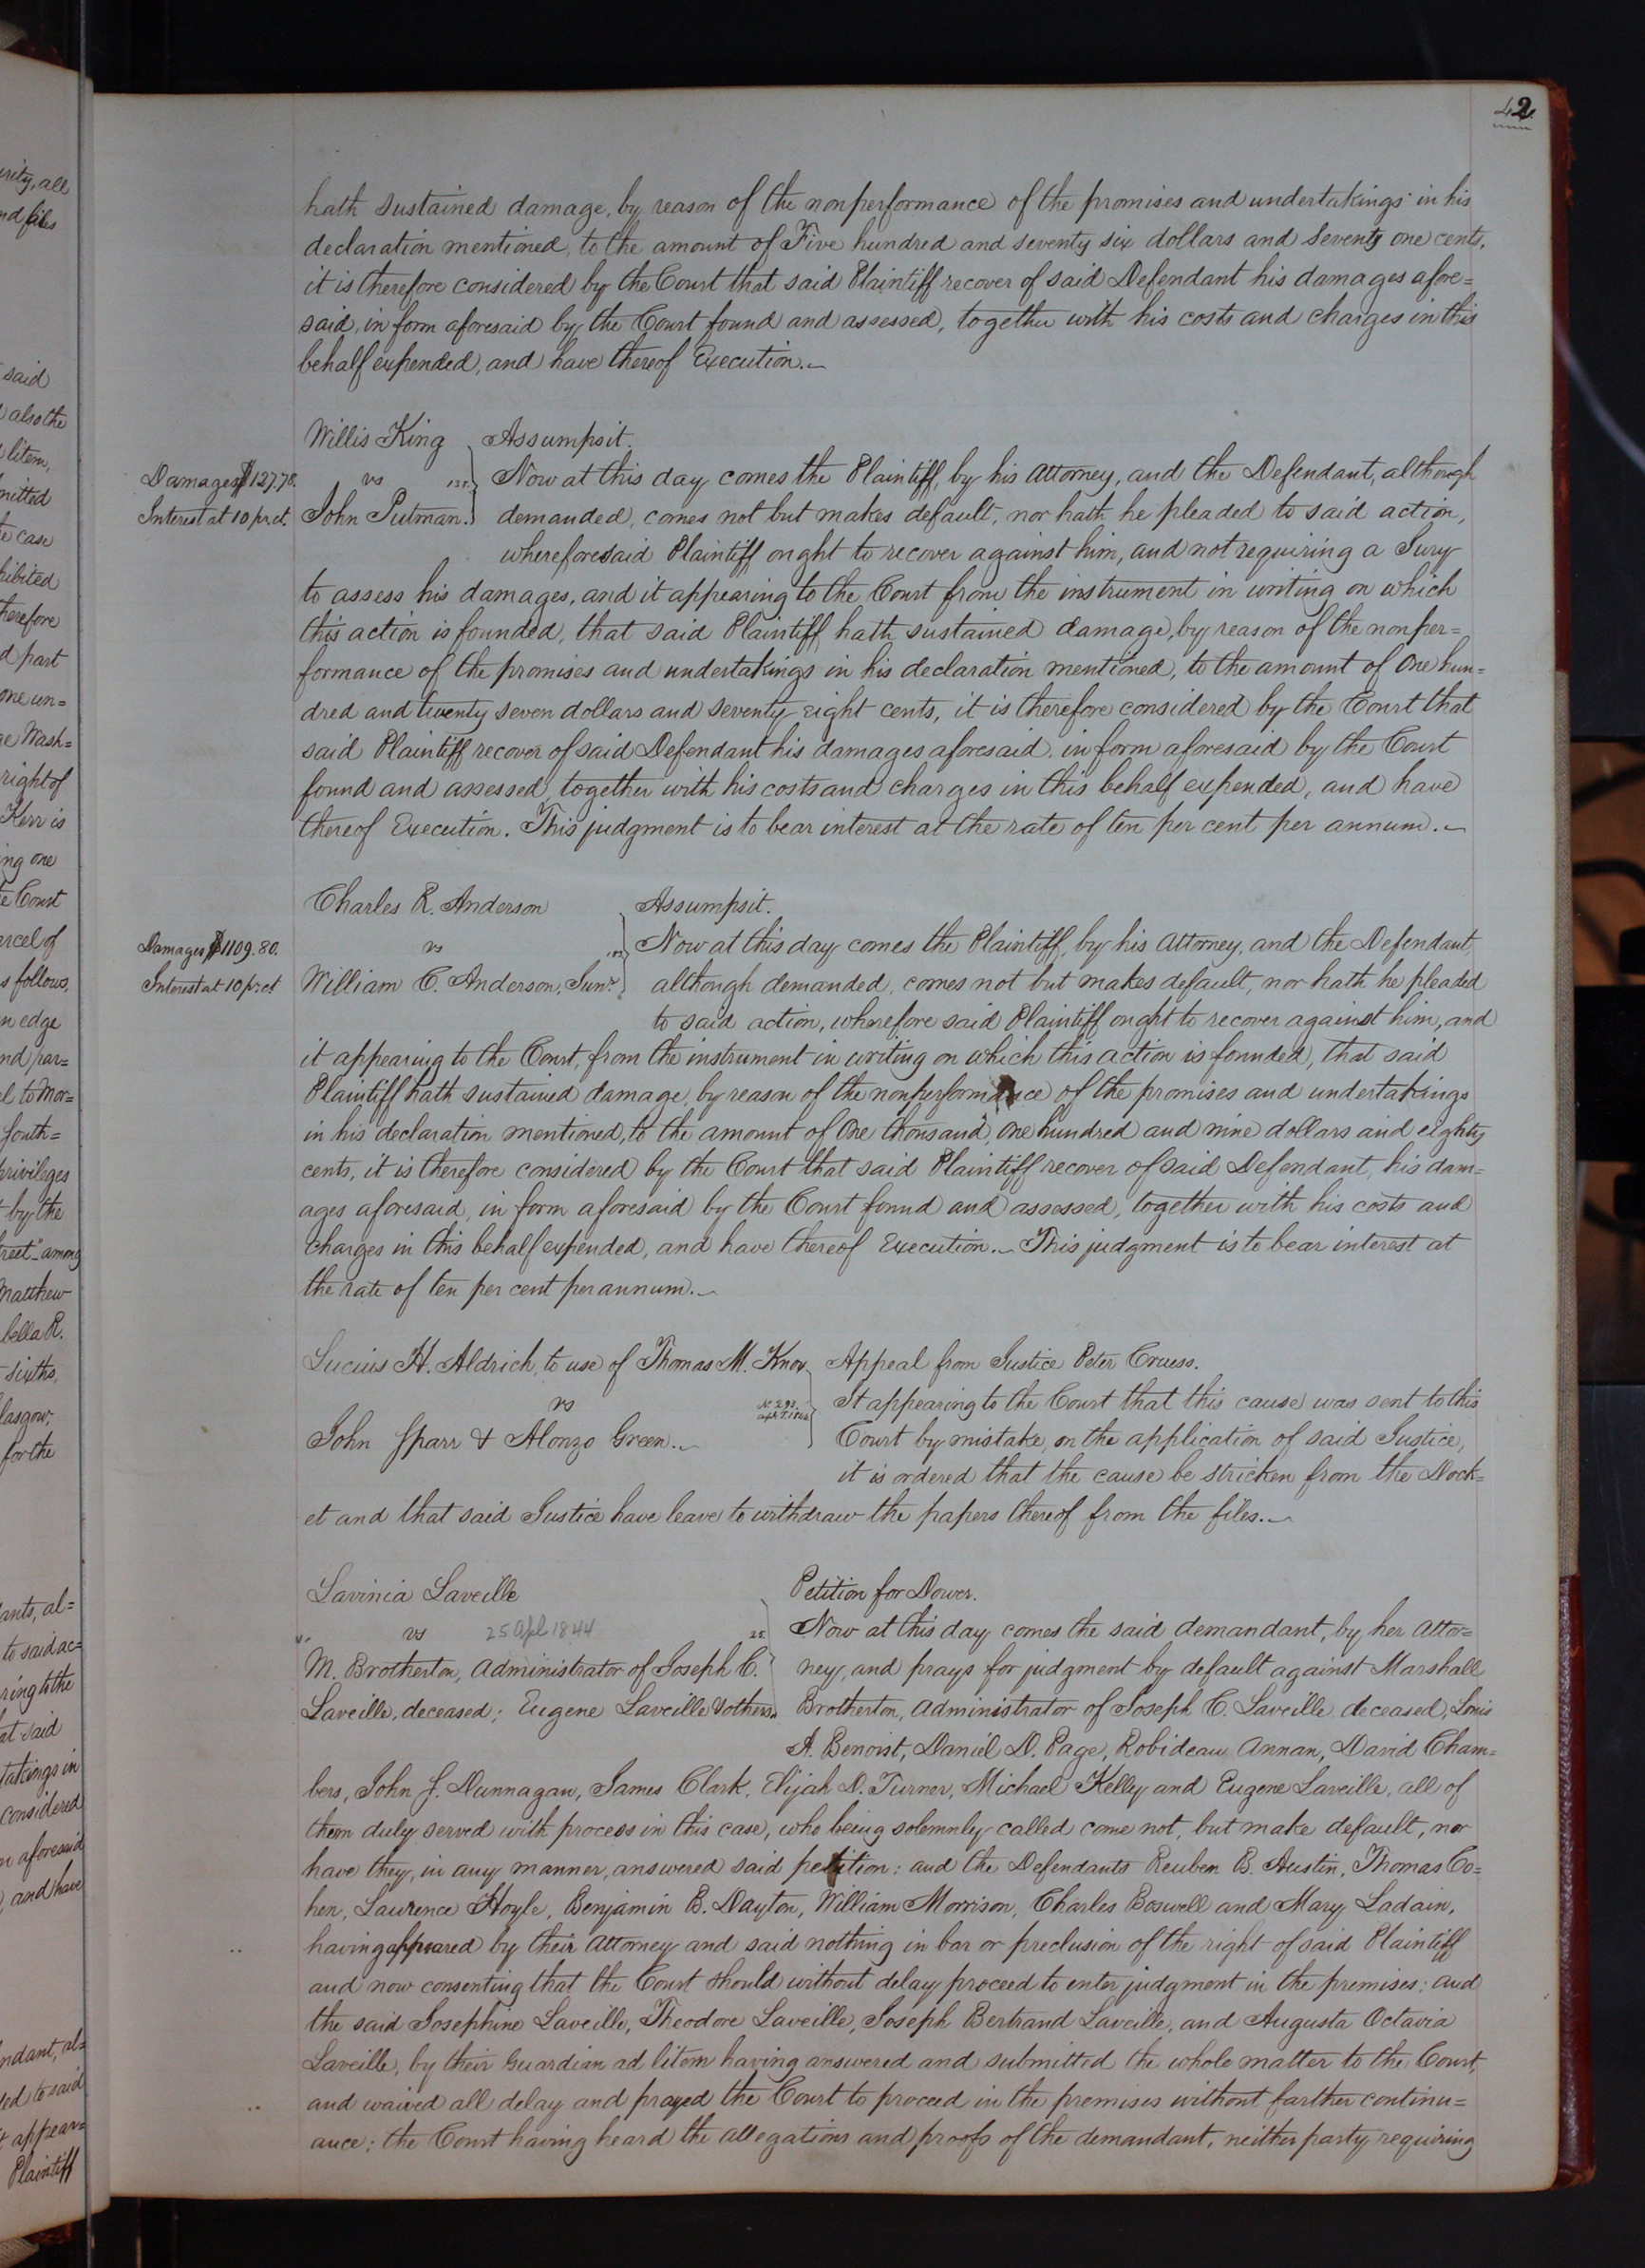 42
hath sustained damage, by reason of the nonperformance of the promises and undertakings in his
declaration mentioned, to the amount of Five hundred and seventy six dollars and seventy one cents,
it is therefore considered by the Court that said Plaintiff recover of said Defendant his damages afore=
said, in form aforesaid by the Court found and assessed, together with his costs and charges in this
behalf expended, and have thereof Execution.
Willis King Assumpsit.
Damages $127.78. vs Now at this day comes the Plaintiff, by his Attorney, and the Defendant, although
Interest at 10 pr. ct. John Putman. demanded, comes not but makes default, nor hath he pleaded to said action,
wherefore said Plaintiff ought to recover against him, and not requiring a Jury
to assess his damages, and it appearing to the Court from the instrument in writing on which
this action is founded, that said Plaintiff hath sustained damage, by reason of the nonper=
formance of the promises and undertakings in his declaration mentioned, to the amount of One hun=
dred and twenty seven dollars and seventy eight cents, it is therefore considered by the Court that
said Plaintiff recover of said Defendant his damages aforesaid, in form aforesaid by the Court
found and assessed, together with his costs and charges in this behalf expended, and have
thereof Execution. This judgment is to bear interest at the rate of ten per cent per annum.
Charles R. Anderson Assumpsit.
Damages $1109.80. vs Now at this day comes the Plaintiff, by his Attorney, and the Defendant,
Interest at 10 pr. ct William C. Anderson, Junr. although demanded, comes not but makes default, nor hath he pleaded
to said action, wherefore said Plaintiff ought to recover against him, and
it appearing to the Court, from the instrument in writing on which this action is founded, that said
Plaintiff hath sustained damage, by reason of the nonperformance of the promises and undertakings
in his declaration mentioned, to the amount of One thousand, one hundred and nine dollars and eighty
cents, it is therefore considered by the Court that said Plaintiff recover of said Defendant, his dam=
ages aforesaid, in form aforesaid by the Court found and assessed, together with his costs and
charges in this behalf expended, and have thereof Execution. This judgment is to bear interest at
the rate of ten per cent per annum.
Lucius H. Aldrich, to use of Thomas M. Knox Appeal from Justice Peter Cruess.
vs No 293. It appearing to the Court that this cause was sent to this
John Sparr & Alonzo Green. Court by mistake, on the application of said Justice,
it is ordered that the cause be stricken from the Dock=
et and that said Justice have leave to withdraw the papers thereof from the files.
Lavinia Laveille Petition for Dower.
vs 25 Apl 1844 25. Now at this day comes the said demandant, by her Attor=
M. Brotherton, Administrator of Joseph C. ney, and prays for judgment by default against Marshall
Laveille, deceased; Eugene Laveille & others. Brotherton, Administrator of Joseph C. Laveille, deceased, Louis
A. Benoist, Daniel D. Page, Robideau Annan, David Cham=
bers, John J. Dunnagan, James Clark, Elijah D. Turner, Michael Kelly and Eugene Laveille, all of
them duly served with process in this case, who being solemnly called come not, but make default, nor
have they, in any manner, answered said petition: and the Defendants Reuben B. Austin, Thomas Co=
hen, Laurence Hoyle, Benjamin B. Dayton, William Morrison, Charles Boswell and Mary Ladain,
having appeared by their Attorney and said nothing in bar or preclusion of the right of said Plaintiff
and now consenting that the Court should without delay proceed to enter judgment in the premises: and
the said Josephine Laveille, Theodore Laveille, Joseph Bertrand Laveille, and Augusta Octavia
Laveille, by their Guardian ad litem having answered and submitted the whole matter to the Court,
and waived all delay and prayed the Court to proceed in the premises without farther continu=
ance; the Court having heard the allegations and proofs of the demandant, neither party requiring